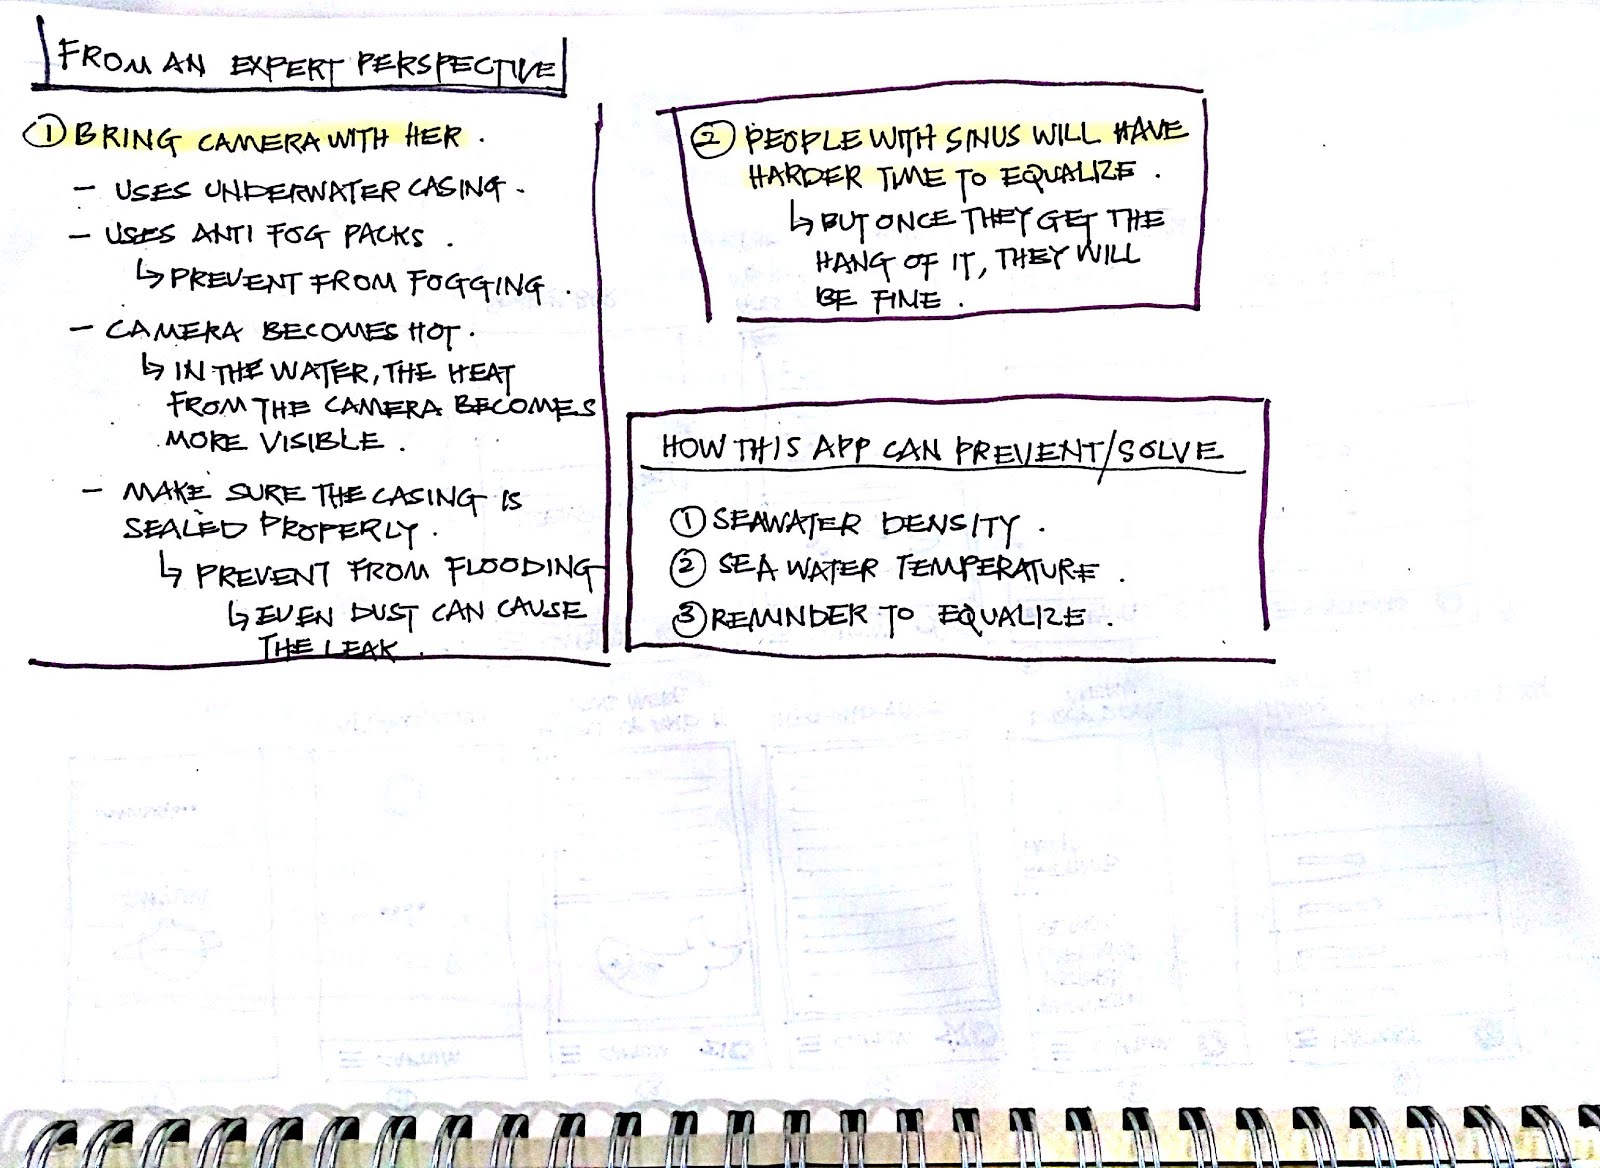 FROM AN EXPERT PERSPECTIVE
① BRING CAMERA WITH HER.
- USES UNDERWATER CASING.
- USES ANTI FOG PACKS.
↳ PREVENT FROM FOGGING.
- CAMERA BECOMES HOT.
↳ IN THE WATER, THE HEAT
FROM THE CAMERA BECOMES
MORE VISIBLE.
- MAKE SURE THE CASING IS
SEALED PROPERLY.
↳ PREVENT FROM FLOODING
↳ EVEN DUST CAN CAUSE
THE LEAK.
② PEOPLE WITH SINUS WILL HAVE
HARDER TIME TO EQUALIZE.
↳ BUT ONCE THEY GET THE
HANG OF IT, THEY WILL
BE FINE.
HOW THIS APP CAN PREVENT/SOLVE
① SEAWATER DENSITY.
② SEA WATER TEMPERATURE.
③ REMINDER TO EQUALIZE.